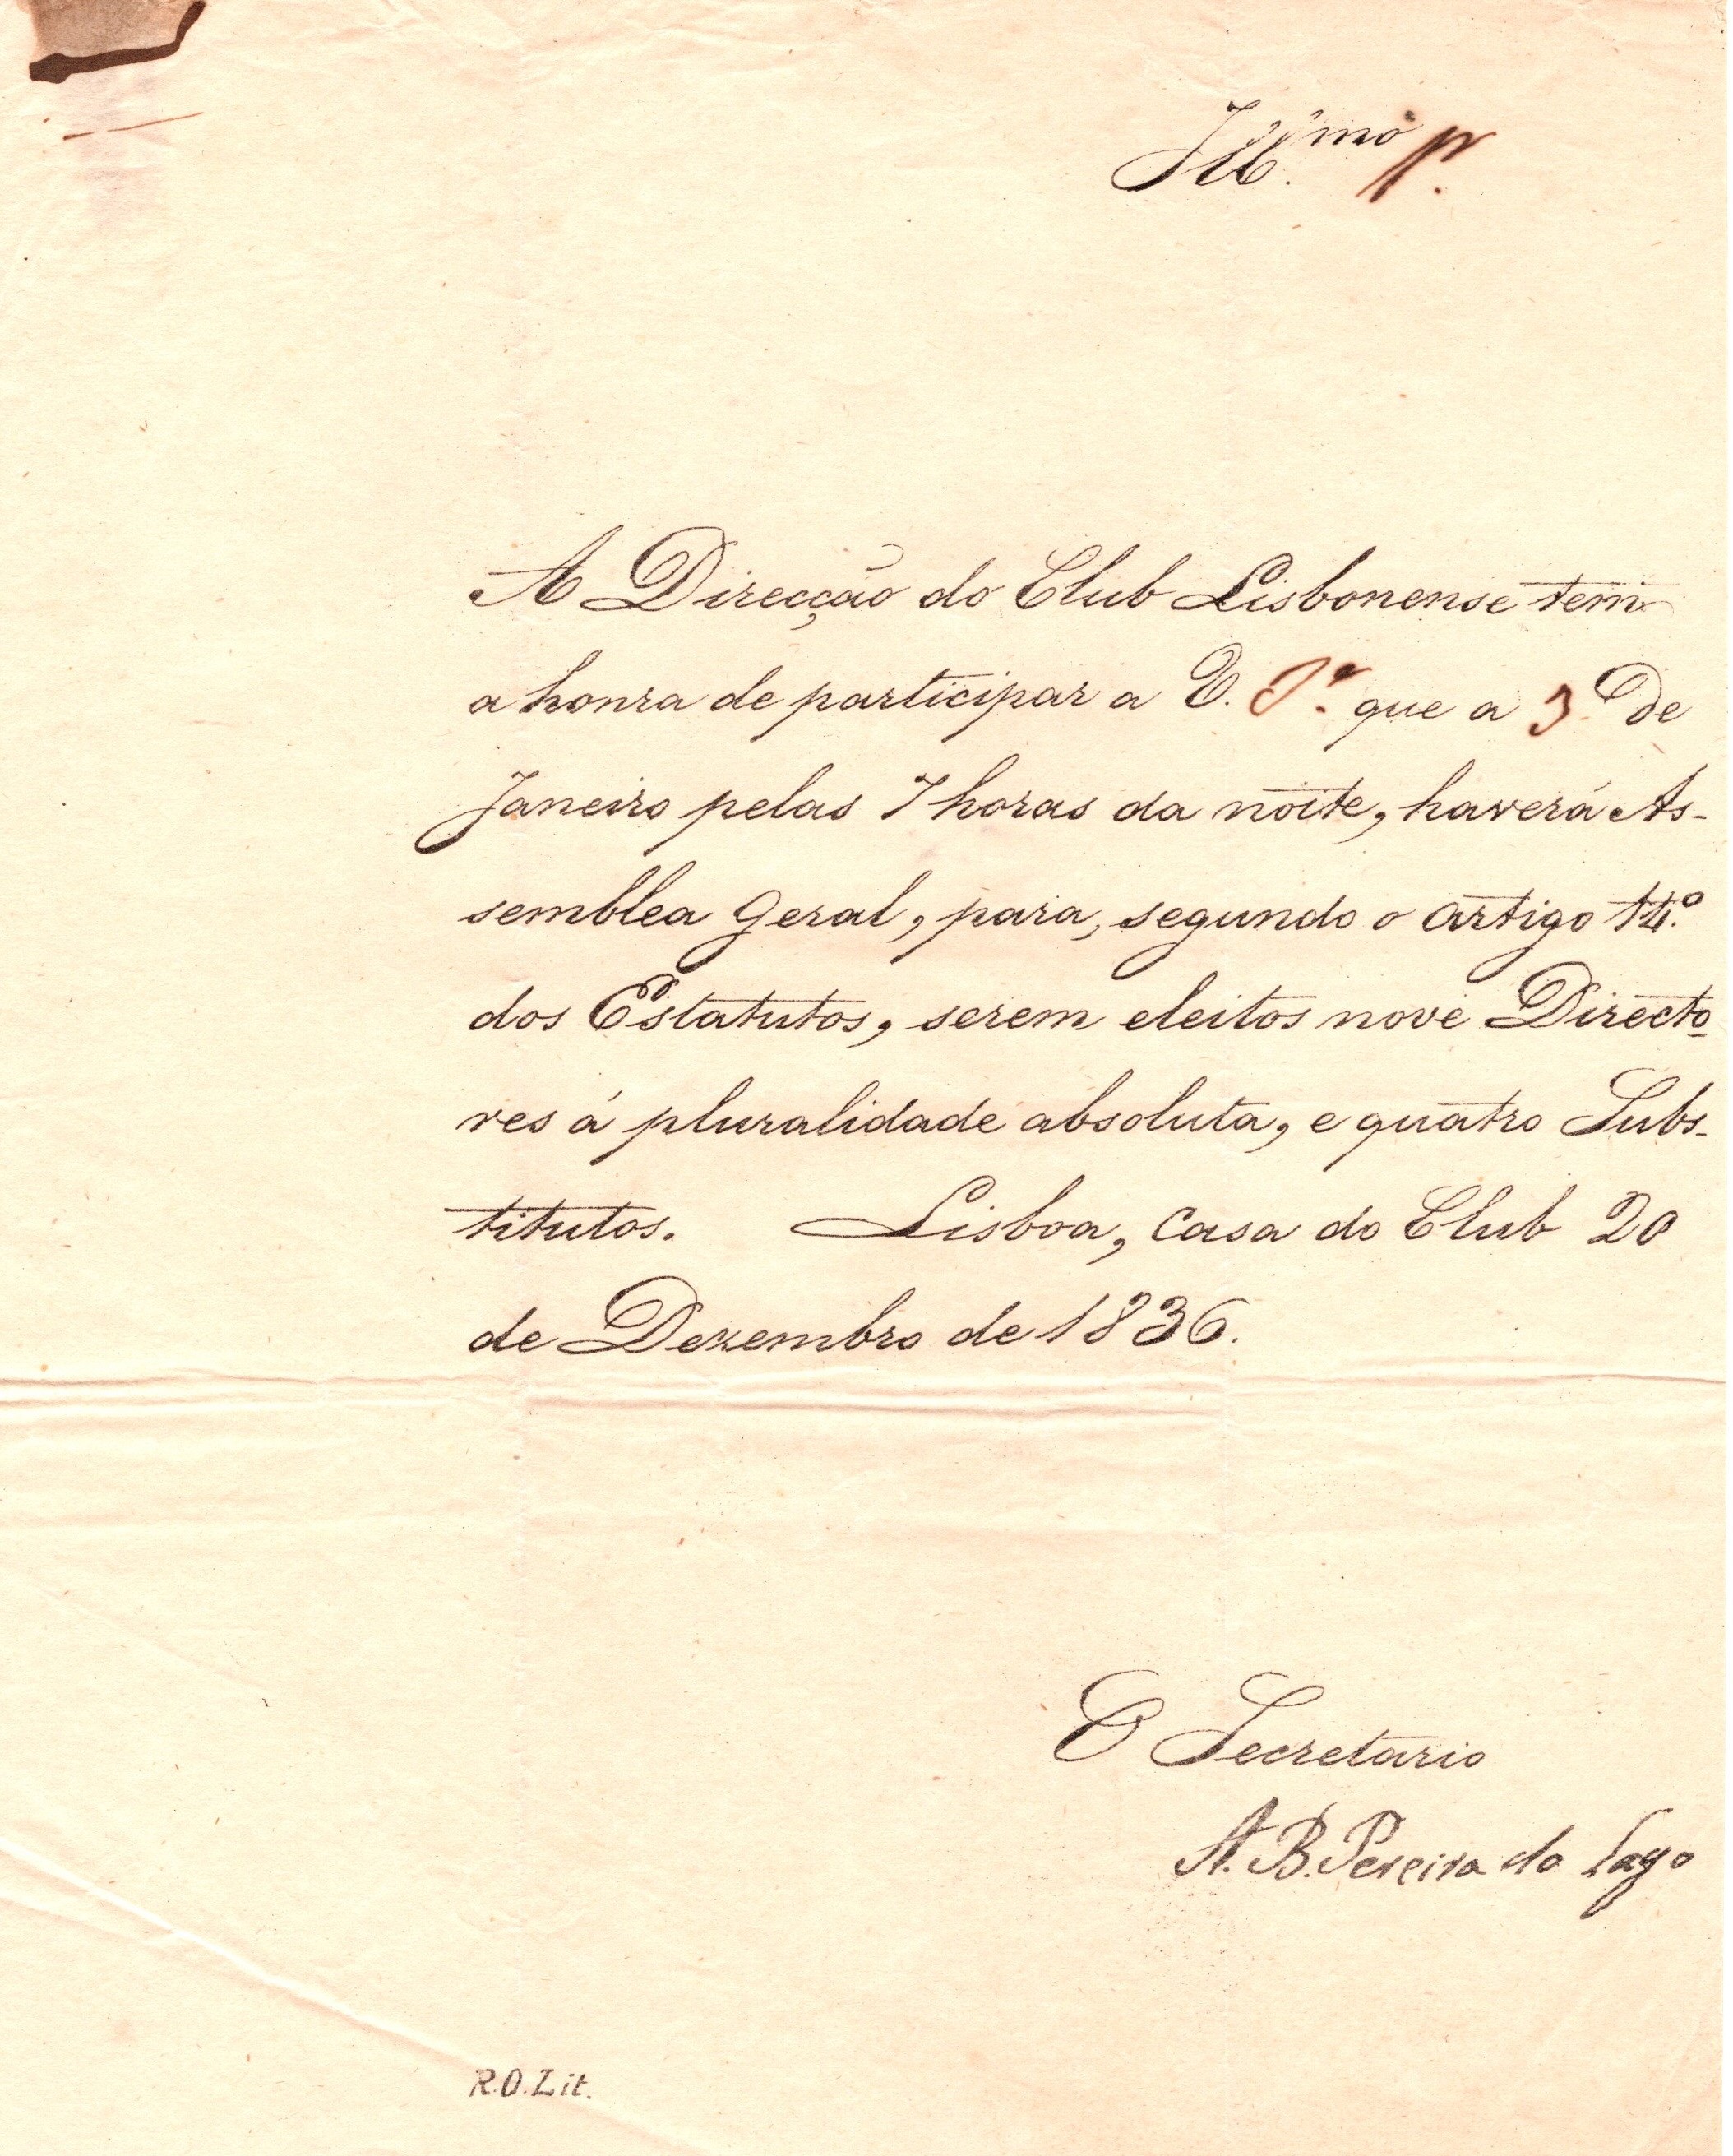 Ill.mo Sr.
A Direcção do Club Lisbonense tem
a honra de participar a V. S.ª que a 3 de
Janeiro pelas 7 horas da noite, haverá As-
semblea Geral, para, segundo o artigo 14.º
dos Estatutos, serem eleitos nove Directo
res á pluralidade absoluta, e quatro Subs-
titutos. Lisboa, Casa do Club 20
de Dezembro de 1836.
O Secretario
A. B. Pereira do Lago
R.O.Lit.